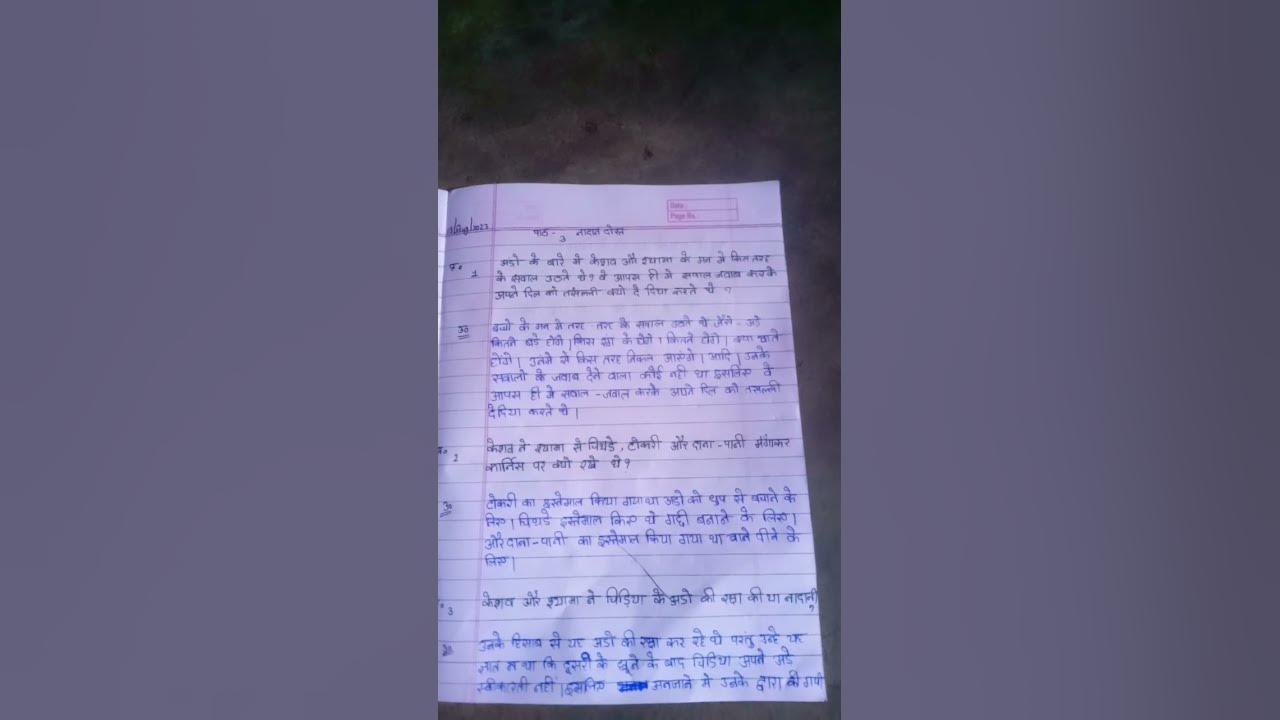 Date :
Page No.
पाठ - 3 नादान दोस्त
प्र० 1 अडो के बारे मे केशव और श्यामा के मन मे किस तरह
के सवाल उठते थे? वे आपस ही मे सवाल जवाब करके
अपने दिल को तसल्ली क्यो दे दिया करते थे ?
उ० बच्चो के मन मे तरह - तरह के सवाल उठते थे जैसे - अडे
कितने बडे होगे। किस रंग के होगे। कितने होगे। क्या खाते
होगे। उनमे से किस तरह निकल आएगे। आदि। उनके
सवालो के जवाब देने वाला कोई नही था इसलिए वे
आपस ही मे सवाल - जवाब करके अपने दिल को तसल्ली
दे दिया करते थे।
2 केशव ने श्यामा से चिथडे, टोकरी और दाना - पानी मंगाकर
कार्निस पर क्यो रखे थे?
उ० टोकरी का इस्तेमाल किया गया था अडो को धुप से बचाने के
लिए। चिथडे इस्तेमाल किए थे गद्दी बनाने के लिए।
और दाना - पानी का इस्तेमाल किया गया था खाने पीने के
लिए।
3 केशव और श्यामा ने चिड़िया के अडो की रक्षा की या नादानी ?
उनके हिसाब से वह अडो की रक्षा कर रहे थे परंतु उन्हे यह
ज्ञात न था कि दूसरी के छूने के बाद चिडिया अपने अडे
स्वीकारती नही। इसलिए अनजाने मे उनके द्वारा की गयी